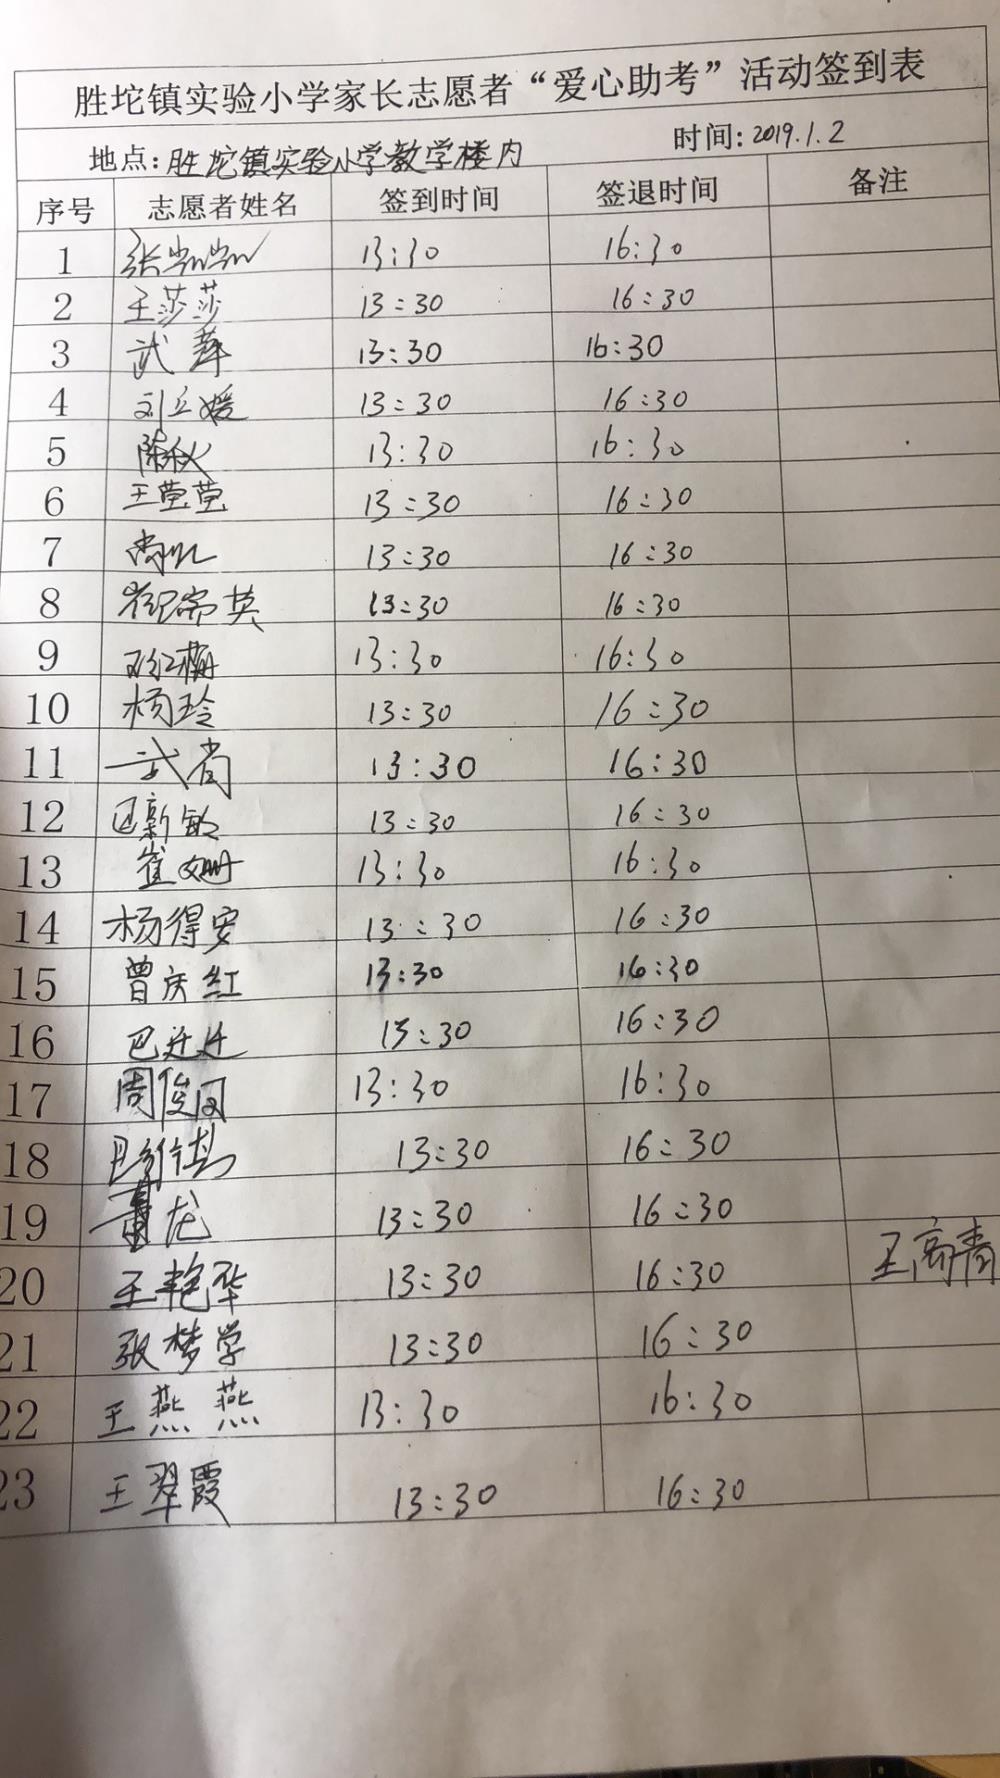 胜坨镇实验小学家长志愿者“爱心助考”活动签到表
地点:胜坨镇实验小学教学楼内 时间:2019.1.2
序号 志愿者姓名 签到时间 签退时间 备注
1 张 13:30 16:30
2 王莎莎 13:30 16:30
3 武萍 13:30 16:30
4 刘立媛 13:30 16:30
5 陈秋 13:30 16:30
6 王莹莹 13:30 16:30
7 13:30 16:30
8 崔瑞英 13:30 16:30
9 红梅 13:30 16:30
10 杨玲 13:30 16:30
11 武尚 13:30 16:30
12 新敏 13:30 16:30
13 崔姗 13:30 16:30
14 杨得安 13:30 16:30
15 曾庆红 13:30 16:30
16 巴 13:30 16:30
17 周俊 13:30 16:30
18 13:30 16:30
19 董龙 13:30 16:30
20 王艳华 13:30 16:30 王高青
21 张梦学 13:30 16:30
22 王燕燕 13:30 16:30
23 王翠霞 13:30 16:30